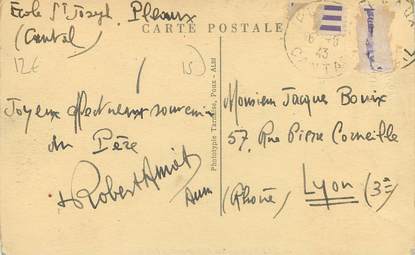 Ecole St Joseph, Pleaux
(Cantal)
CARTE POSTALE
12€
15
Joyeux affectueux souvenir
du Père
Robert
Aum
Phototypie Tarnaise, Poux - ALBI
43
CANTAL
Monsieur Jacques Bouix
57, Rue Pierre Corneille
Lyon (3e)
(Rhône)